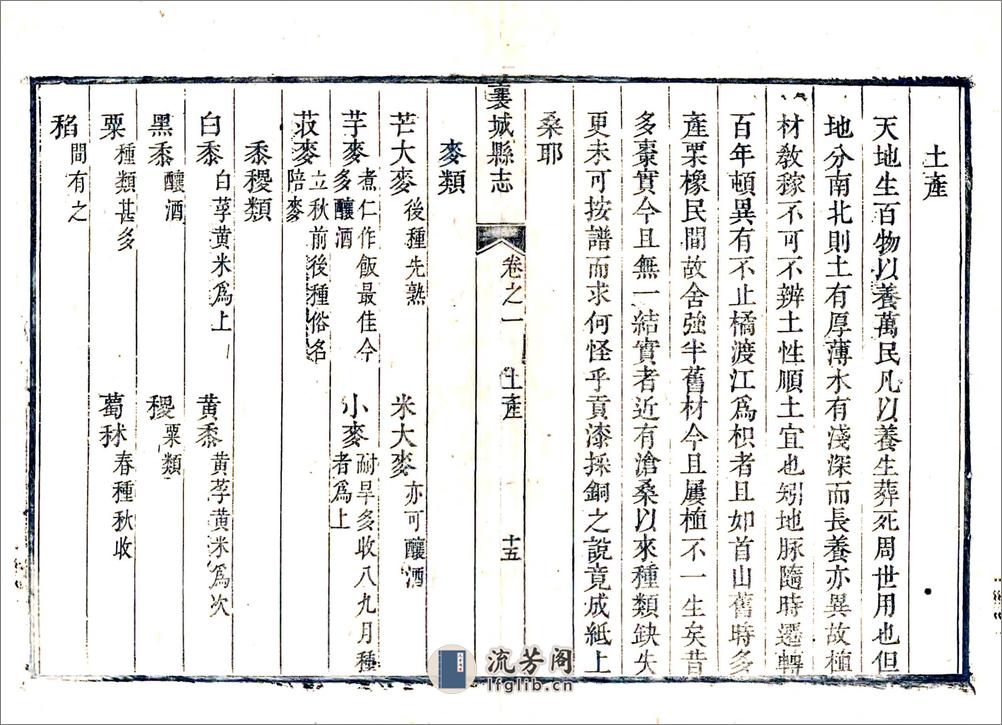 土產
天地生百物以養萬民凡以養生葬死周世用也但
地分南北則土有厚薄水有淺深而長養亦異故植
材敎稼不可不辨土性順土宜也矧地脉隨時遷轉
百年頓異有不止橘渡江爲枳者且如首山舊時多
產栗橡民間故舍強半舊材今且屢植不一生矣昔
多棗實今且無一結實者近有滄桑以來種類缺失
更未可按譜而求何怪乎貢漆採銅之說竟成紙上
桑耶
襄城縣志 卷之一 土產 十五
麥類
芒大麥 後種先熟 米大麥 亦可釀酒
芓麥 煮仁作飯最佳今多釀酒 小麥 耐旱多收八九月種者爲上
荍麥 立秋前後種俗名陪麥
黍稷類
白黍 白莩黄米爲上 黄黍 黄莩黄米爲次
黑黍 釀酒 稷 粟類
粟 種類甚多 蔔秫 春種秋收
稻 間有之
流芳阁
lfglib.cn